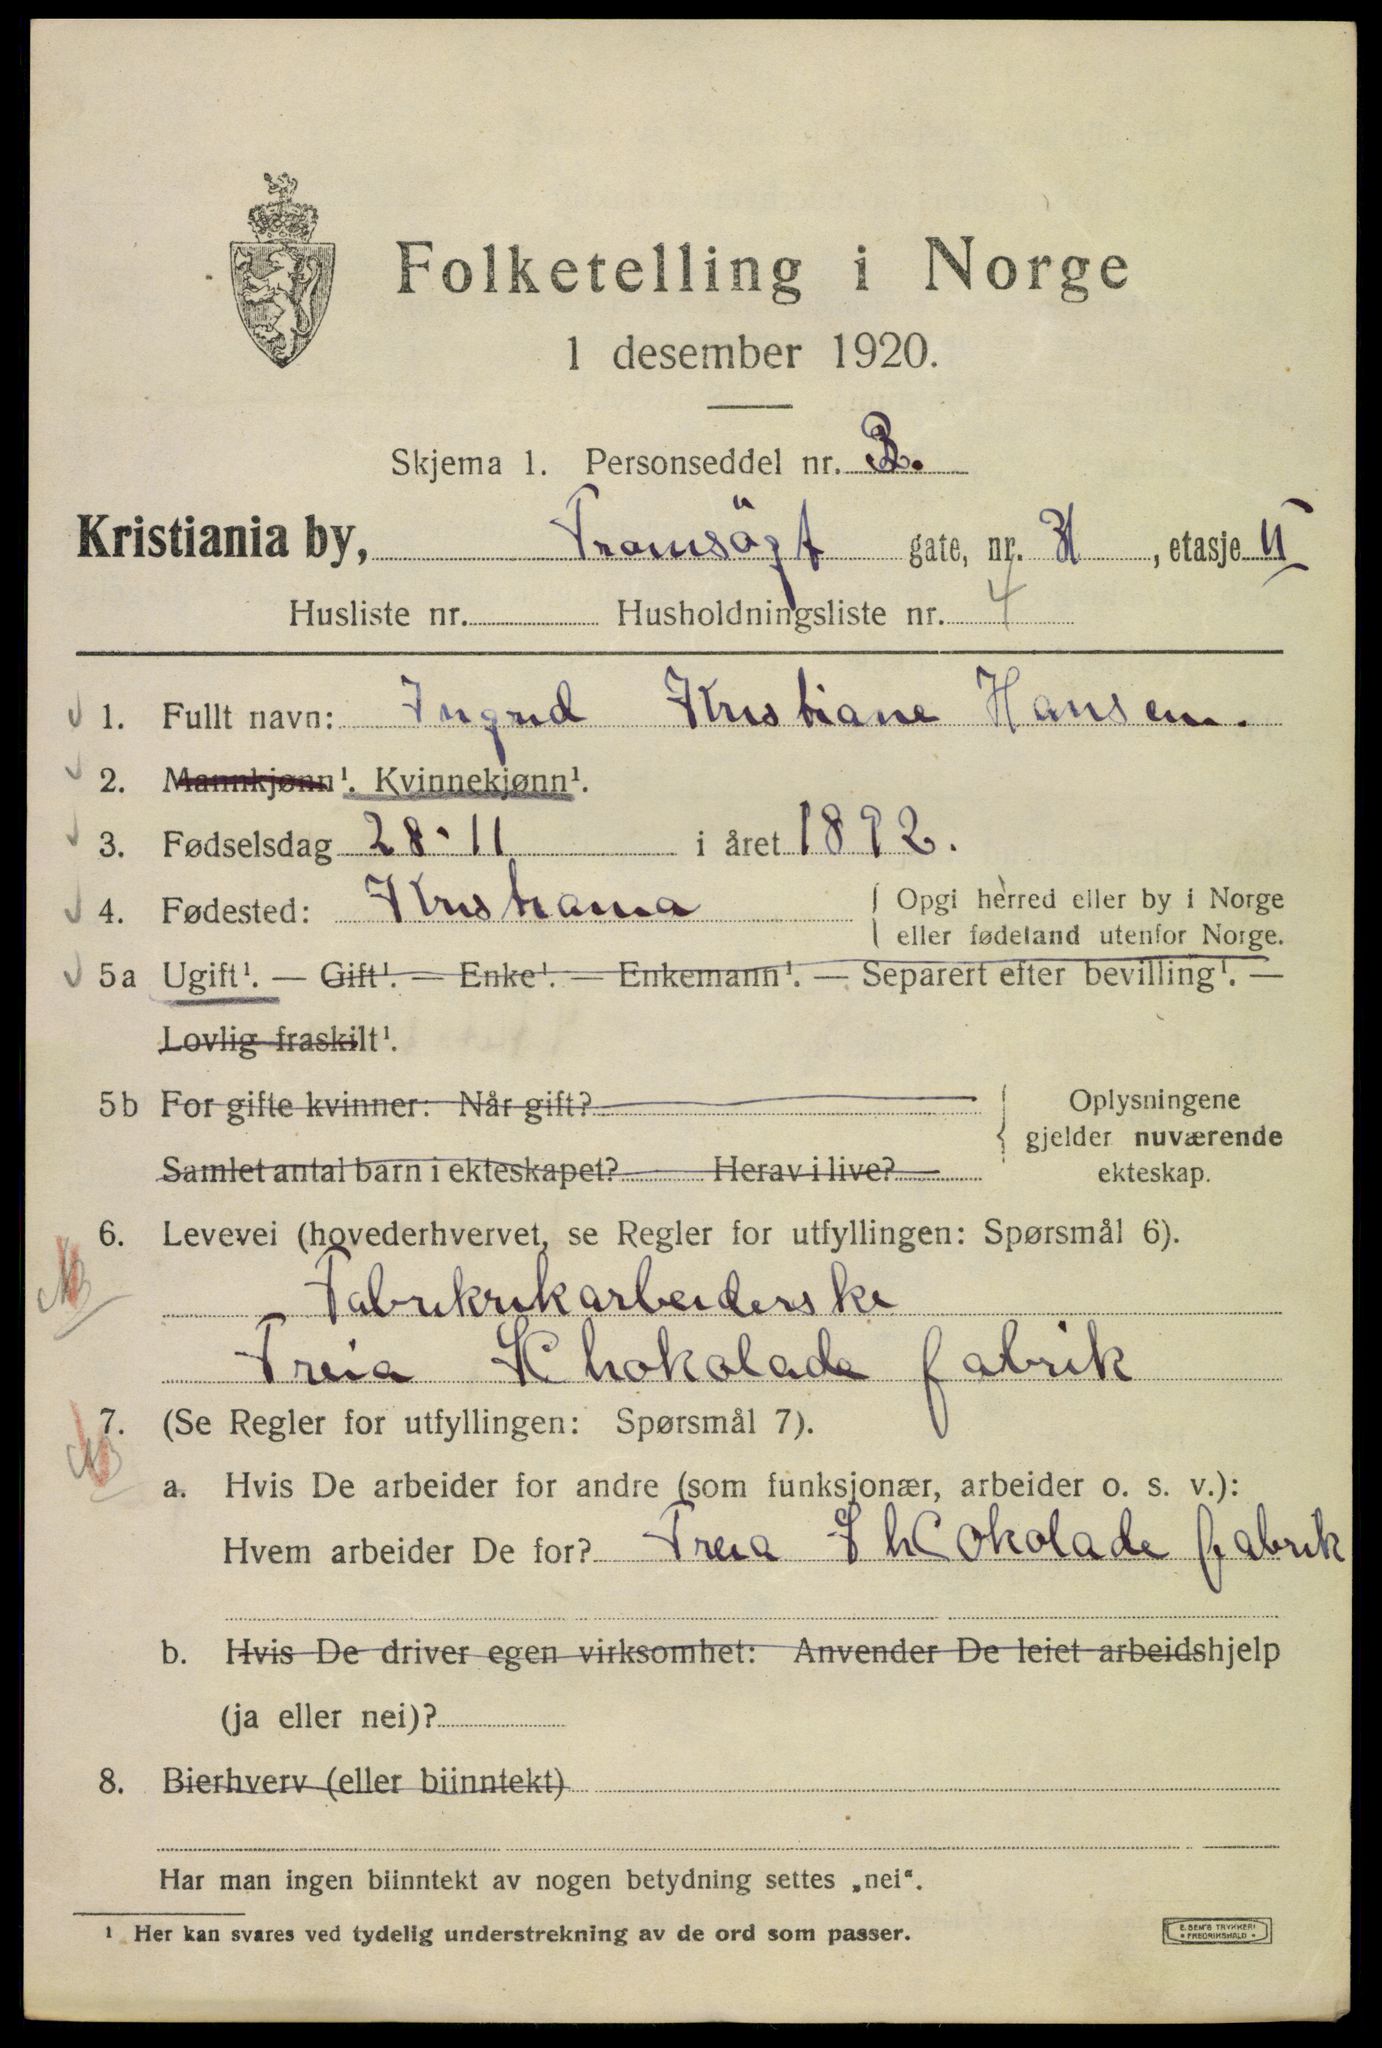 Folketelling i Norge
1 desember 1920.
Skjema 1. Personseddel nr.
Kristiania by, Tromsögt gate, nr. , etasje II
Husliste nr. Husholdningsliste nr. 4
1. Fullt navn: Ingrid Kristiane Hansen.
2. Mannkjønn¹. Kvinnekjønn¹.
3. Fødselsdag 28·11 i året 1892.
4. Fødested: Kristiania { Opgi herred eller by i Norge
eller fødeland utenfor Norge.
5a Ugift¹. — Gift¹. — Enke¹. — Enkemann¹. — Separert efter bevilling¹. —
Lovlig fraskilt¹.
5b For gifte kvinner: Når gift? { Oplysningene
gjelder nuværende
Samlet antal barn i ekteskapet? Herav i live? ekteskap.
6. Levevei (hovederhvervet, se Regler for utfyllingen: Spørsmål 6).
Fabrikrikarbeiderske
Freia Schokolade fabrik
7. (Se Regler for utfyllingen: Spørsmål 7).
a. Hvis De arbeider for andre (som funksjonær, arbeider o. s. v.):
Hvem arbeider De for? Freia fabrik
b. Hvis De driver egen virksomhet: Anvender De leiet arbeidshjelp
(ja eller nei)?
8. Bierhverv (eller biinntekt)
Har man ingen biinntekt av nogen betydning settes „nei“.
¹ Her kan svares ved tydelig understrekning av de ord som passer.
E. SEM'S TRYKKERI
• FREDRIKSHALD •